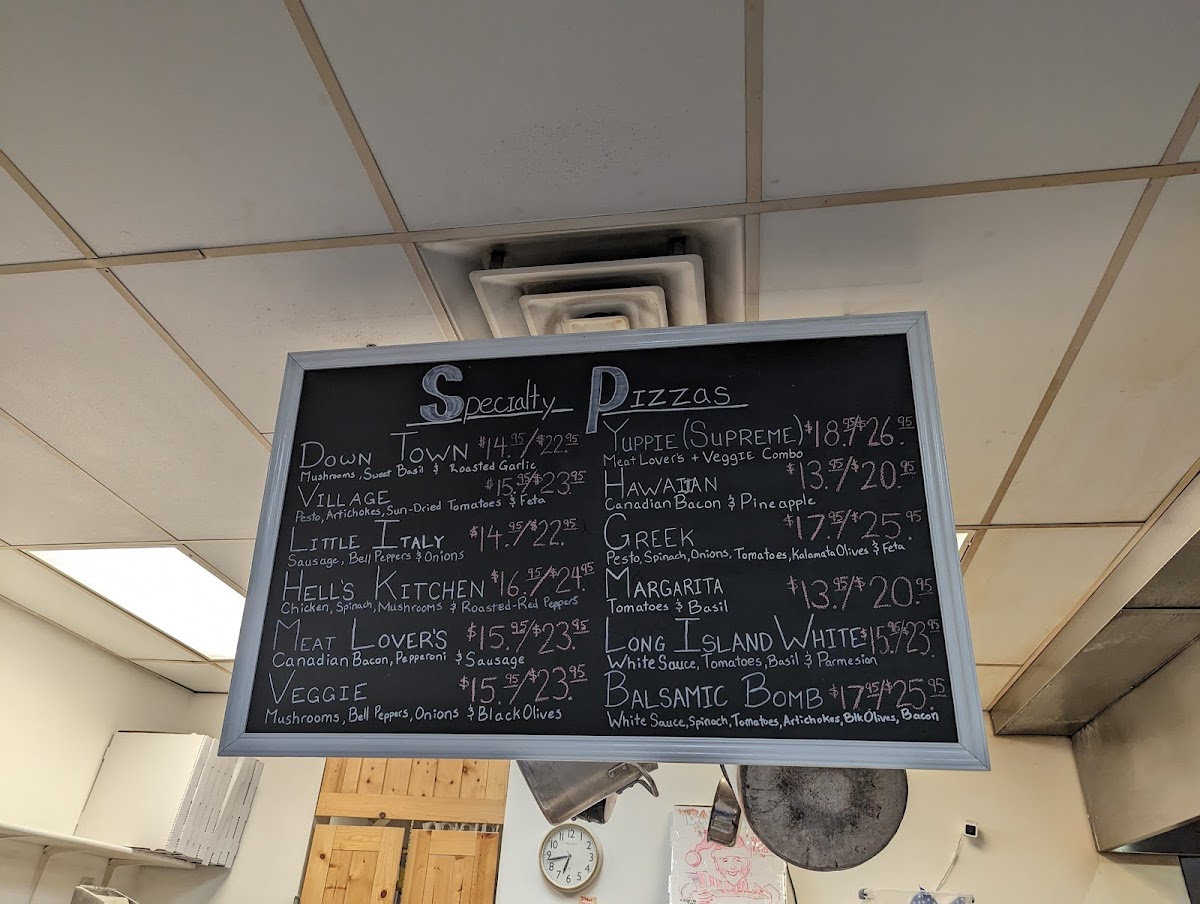 Specialty Pizzas
Down Town $14.95/$22.95
Mushrooms, Sweet Basil & Roasted Garlic
Village $15.95/$23.95
Pesto, Artichokes, Sun-Dried Tomatoes & Feta
Little Italy $14.95/$22.95
Sausage, Bell Peppers & Onions
Hell's Kitchen $16.95/$24.95
Chicken, Spinach, Mushrooms & Roasted-Red Peppers
Meat Lover's $15.95/$23.95
Canadian Bacon, Pepperoni & Sausage
Veggie $15.95/$23.95
Mushrooms, Bell Peppers, Onions & Black Olives
Yuppie (Supreme) $18.95/$26.95
Meat Lover's + Veggie Combo
Hawaiian $13.95/$20.95
Canadian Bacon & Pineapple
Greek $17.95/$25.95
Pesto, Spinach, Onions, Tomatoes, Kalamata Olives & Feta
Margarita $13.95/$20.95
Tomatoes & Basil
Long Island White $15.95/$23.95
White Sauce, Tomatoes, Basil & Parmesian
Balsamic Bomb $17.95/$25.95
White Sauce, Spinach, Tomatoes, Artichokes, Blk Olives, Bacon